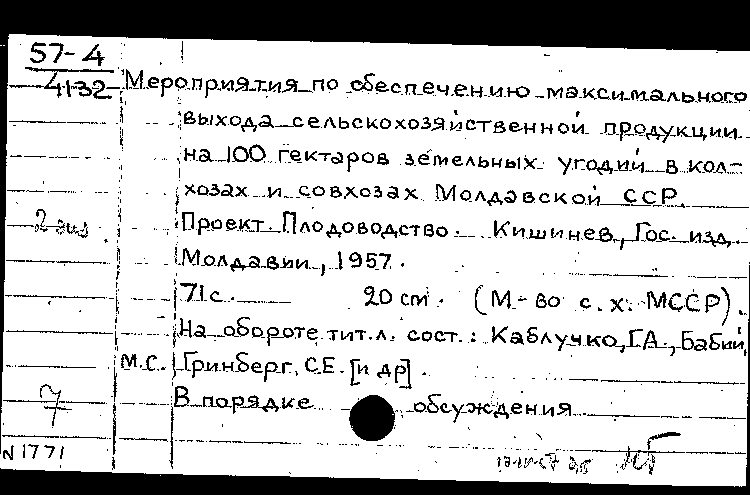 57-4
4132
Мероприятия по обеспечению максимального
выхода сельскохозяйственной продукции
на 100 гектаров земельных угодий в кол-
хозах и совхозах Молдавской ССР.
2 экз.
Проект. Плодоводство. Кишинев, Гос. изд.
Молдавии, 1957.
71 с. 20 см. (М-во с. х. МССР).
На обороте тит. л. сост.: Каблучко, Г.А., Бабий,
М.С. Гринберг, С.Е. [и др].
7 В порядке обсуждения
N 1771